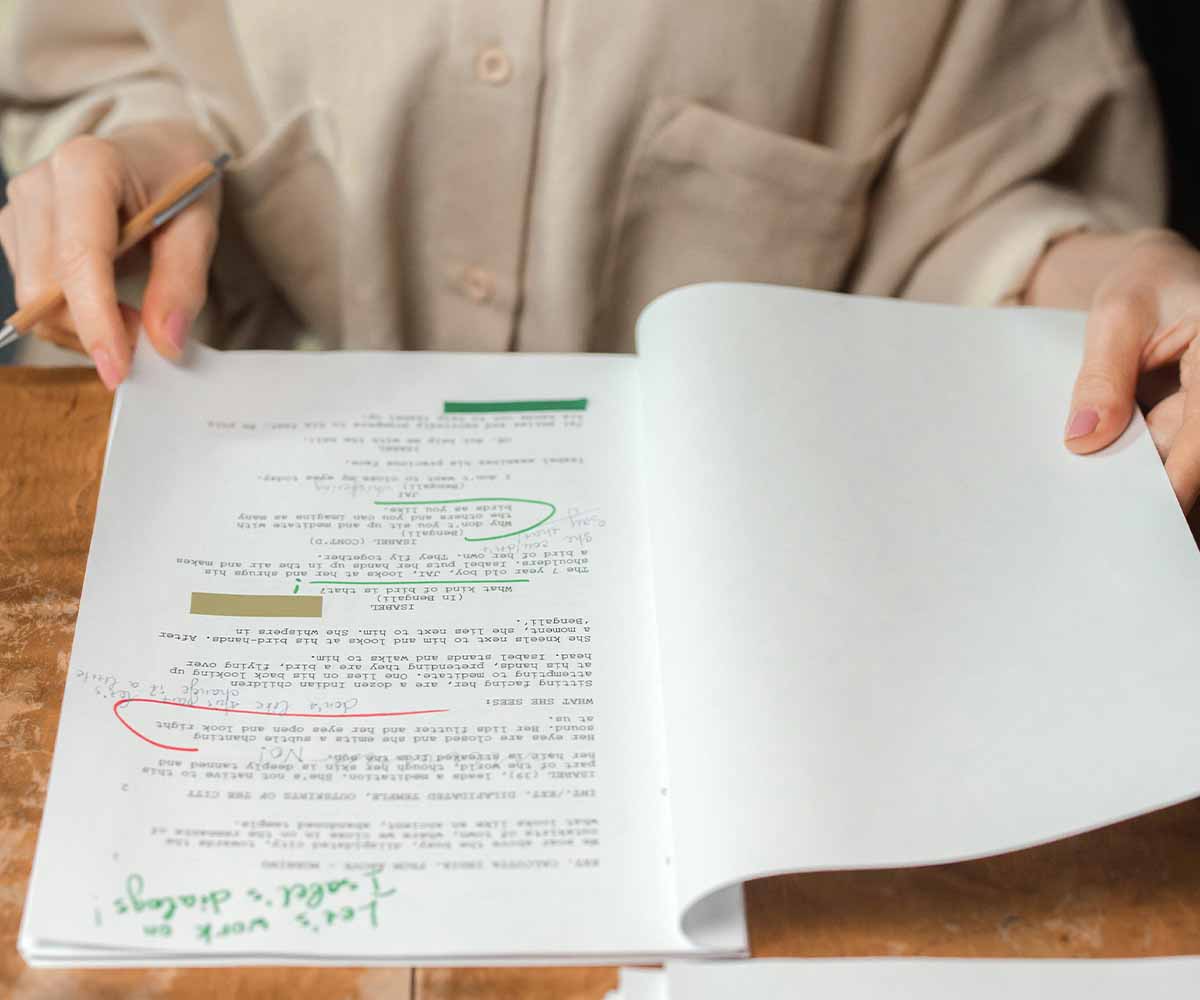 Let's work on
Isabel's dialogs!
EXT. CALCUTTA INDIA. FROM ABOVE - MORNING
1
1
We soar above the busy, dilapidated city, towards the
outskirts of town, where we close in on the remnants of
what looks like an ancient, abandoned temple.
INT./EXT. DILAPIDATED TEMPLE, OUTSKIRTS OF THE CITY
2
2
ISABEL (39), leads a meditation. She's not native to this
part of the world, though her skin is deeply tanned and
her hair is streaked from the sun.
No!
Her eyes are closed and she emits a subtle chanting
sound. Her lids flutter and her eyes open and look right
at us.
WHAT SHE SEES:
don't like this part let's
change it a little
Sitting facing her, are a dozen Indian children
attempting to meditate. One lies on his back looking up
at his hands, pretending they are a bird, flying over
head. Isabel stands and walks to him.
She kneels next to him and looks at his bird-hands. After
a moment, she lies next to him. She whispers in
'Bengali'.
ISABEL
(In Bengali)
What kind of bird is that?
!
The 7 year old boy, JAI, looks at her and shrugs his
shoulders. Isabel puts her hands up in the air and makes
a bird of her own. They fly together.
She couldn't
say that
ISABEL (CONT'D)
(Bengali)
Why don't you sit up and meditate with
the others and you can imagine as many
birds as you like.
JAI
(Bengali) whispering
I don't want to close my eyes today.
Isabel examines his precious face.
ISABEL
OK. But help me with the bell.